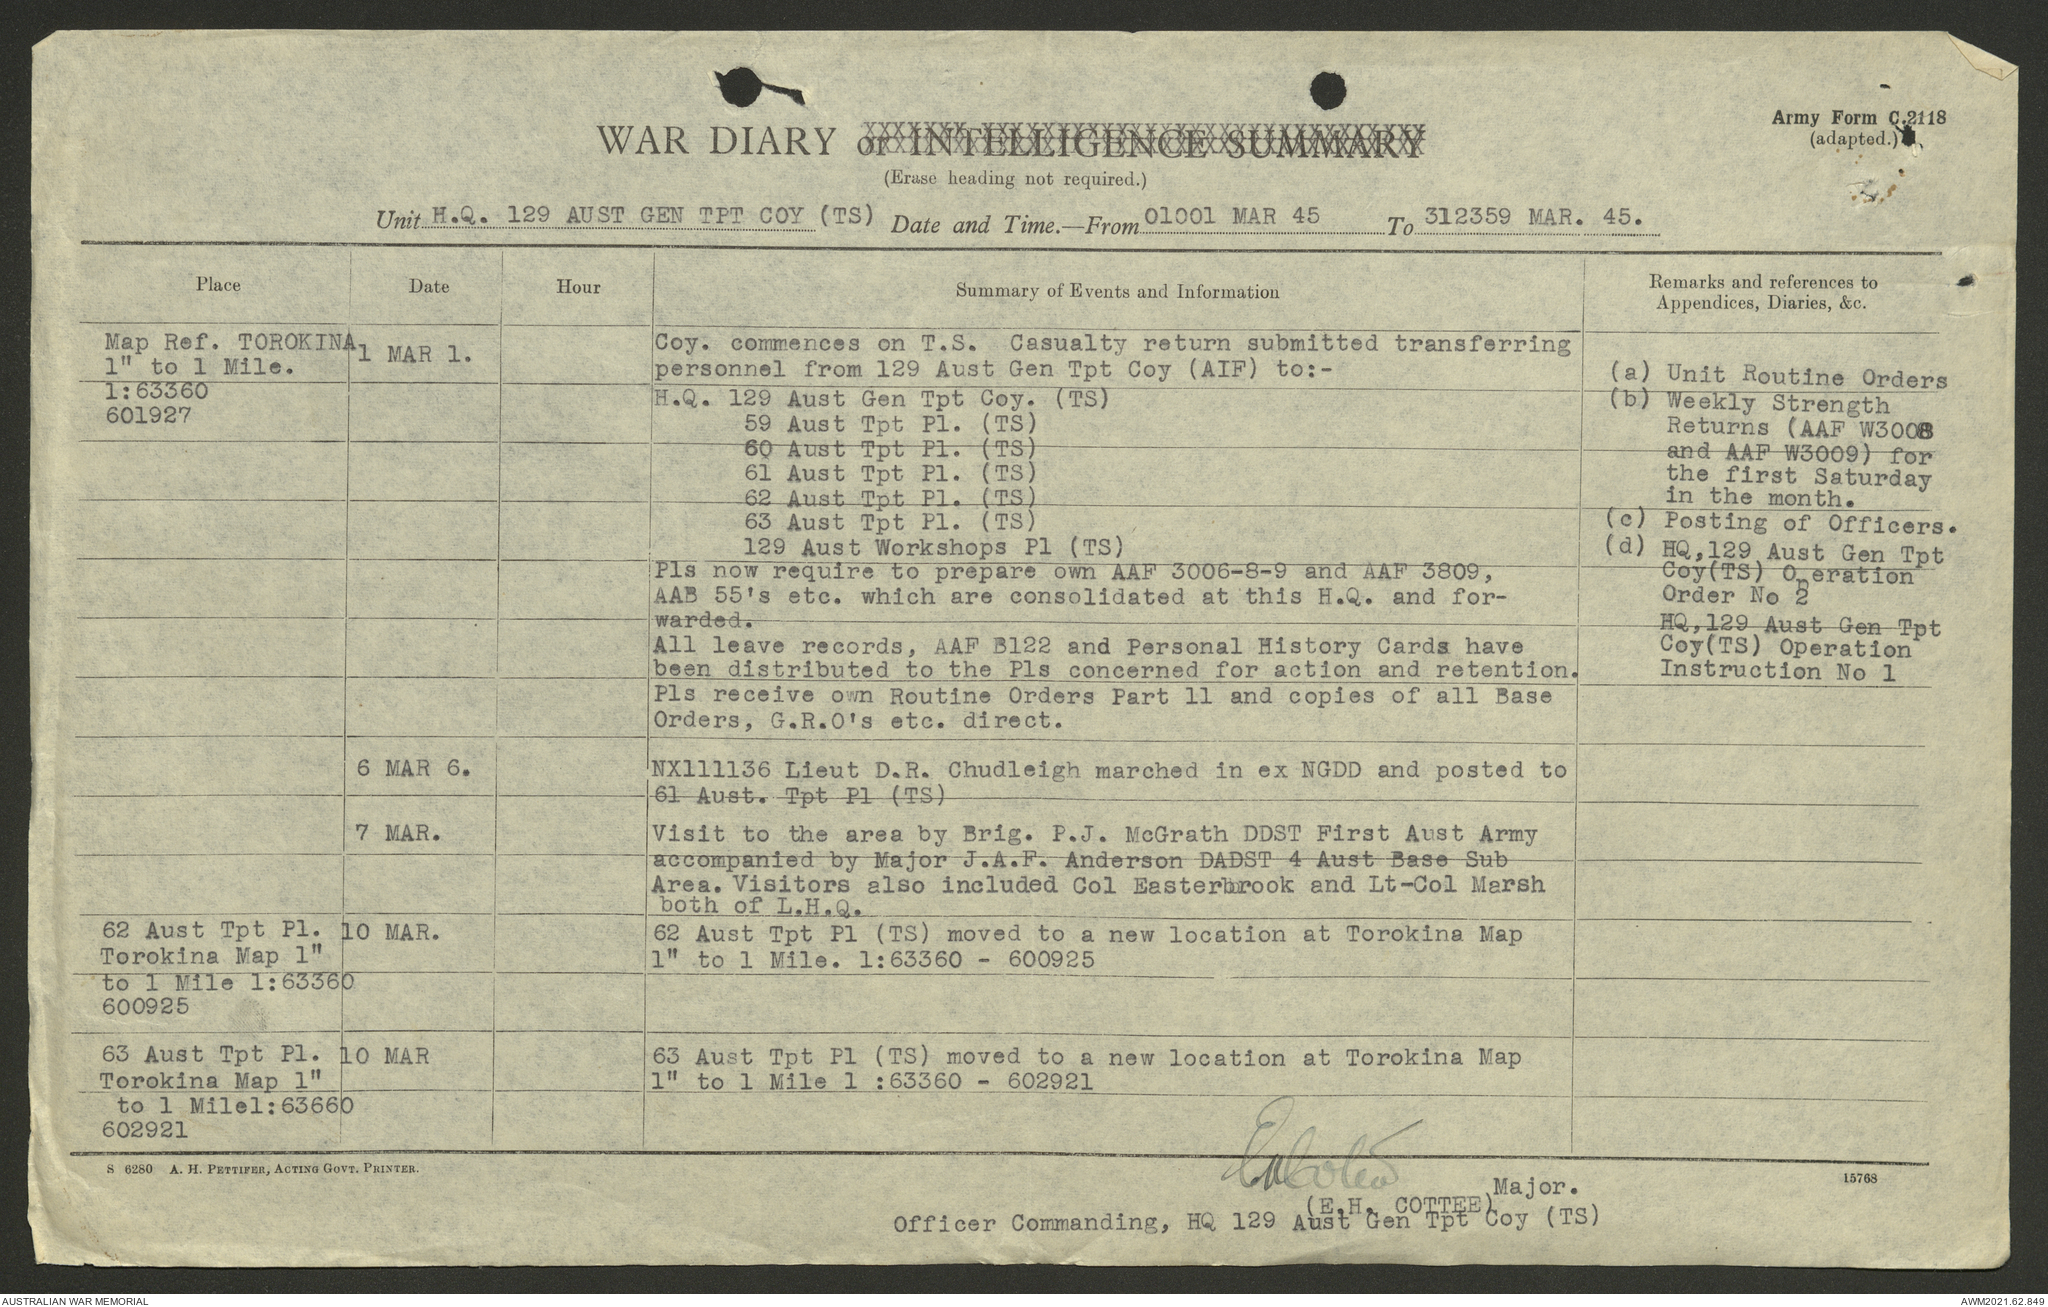 Army Form C.2118
(adapted.)
WAR DIARY or INTELLIGENCE SUMMARY
(Erase heading not required.)
Unit H.Q. 129 AUST GEN TPT COY (TS) Date and Time.—From 01001 MAR 45 To 312359 MAR. 45.
Place Date Hour Summary of Events and Information Remarks and references to
Appendices, Diaries, &c.
Map Ref. TOROKINA
1" to 1 Mile.
1:63360
601927
1 MAR 1.
Coy. commences on T.S. Casualty return submitted transferring
personnel from 129 Aust Gen Tpt Coy (AIF) to:-
H.Q. 129 Aust Gen Tpt Coy. (TS)
59 Aust Tpt Pl. (TS)
60 Aust Tpt Pl. (TS)
61 Aust Tpt Pl. (TS)
62 Aust Tpt Pl. (TS)
63 Aust Tpt Pl. (TS)
129 Aust Workshops Pl (TS)
Pls now require to prepare own AAF 3006-8-9 and AAF 3809,
AAB 55's etc. which are consolidated at this H.Q. and for-
warded.
All leave records, AAF B122 and Personal History Cards have
been distributed to the Pls concerned for action and retention.
Pls receive own Routine Orders Part 11 and copies of all Base
Orders, G.R.O's etc. direct.
(a) Unit Routine Orders
(b) Weekly Strength
Returns (AAF W3008
and AAF W3009) for
the first Saturday
in the month.
(c) Posting of Officers.
(d) HQ,129 Aust Gen Tpt
Coy(TS) Operation
Order No 2
HQ,129 Aust Gen Tpt
Coy(TS) Operation
Instruction No 1
6 MAR 6.
NX111136 Lieut D.R. Chudleigh marched in ex NGDD and posted to
61 Aust. Tpt Pl (TS)
7 MAR.
Visit to the area by Brig. P.J. McGrath DDST First Aust Army
accompanied by Major J.A.F. Anderson DADST 4 Aust Base Sub
Area. Visitors also included Col Easterbrook and Lt-Col Marsh
both of L.H.Q.
62 Aust Tpt Pl.
Torokina Map 1"
to 1 Mile 1:63360
600925
10 MAR.
62 Aust Tpt Pl (TS) moved to a new location at Torokina Map
1" to 1 Mile. 1:63360 - 600925
63 Aust Tpt Pl.
Torokina Map 1"
to 1 Mile1:63660
602921
10 MAR
63 Aust Tpt Pl (TS) moved to a new location at Torokina Map
1" to 1 Mile 1 :63360 - 602921
S 6280 A. H. PETTIFER, ACTING GOVT. PRINTER.
15768
Major.
(E.H. COTTEE)
Officer Commanding, HQ 129 Aust Gen Tpt Coy (TS)
AUSTRALIAN WAR MEMORIAL
AWM2021.62.849